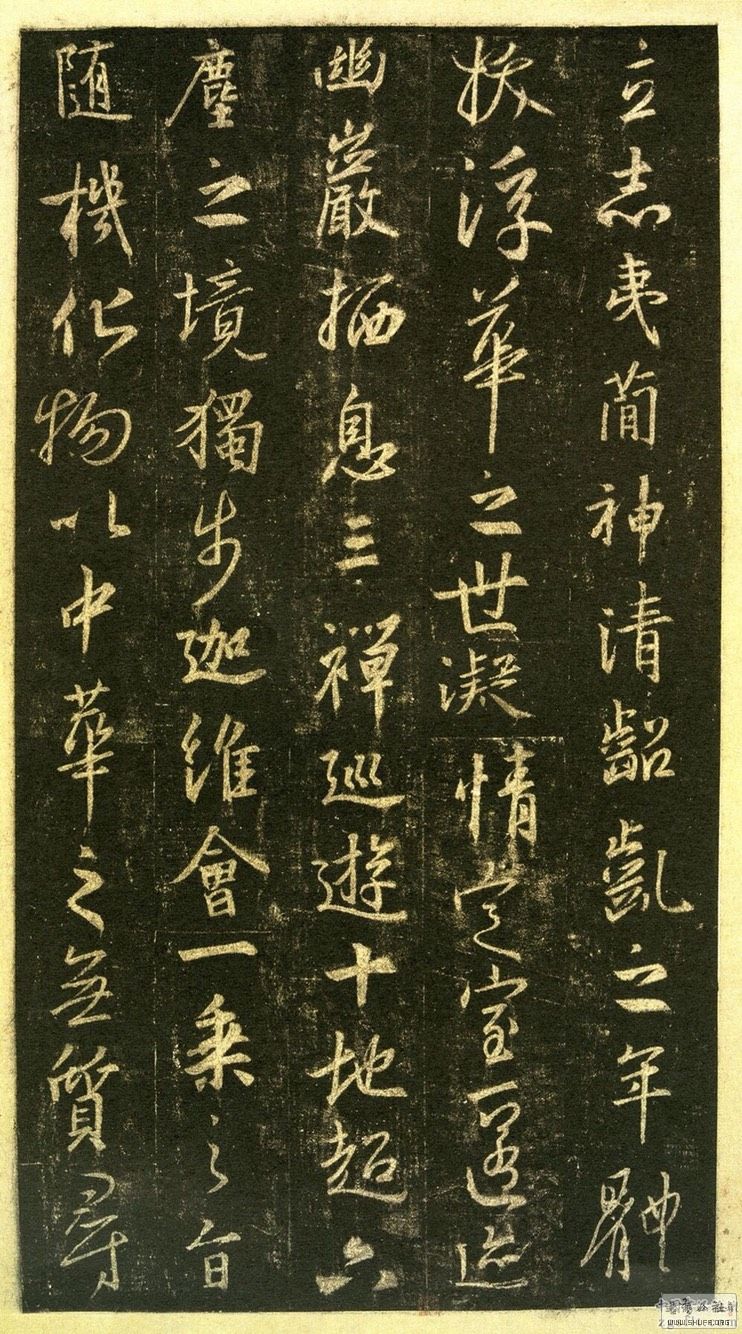 立志夷蕳神清齠齓之年體
拔浮華之世凝情定室匿迹
幽巖栖息三禪巡遊十地超六
塵之境獨步迦維會一乘之旨
隨機化物以中華之無質尋
WWW.SHUFA.ORG